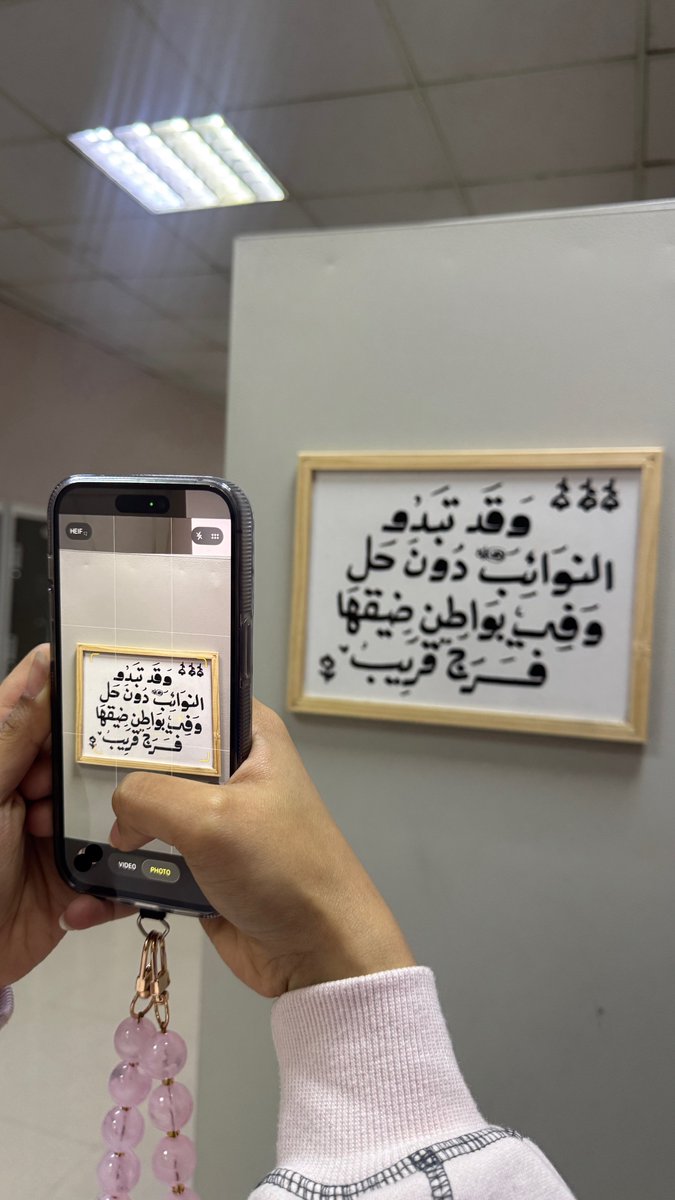 وَقَد تَبدُو
النوَائِبَ دُونَ حَل
وَفِي بَوَاطِنِ ضِيقهَا
فَرَجٌ قَرِيبٌ
HEIF
وَقَد تَبدُو
النوَائِبَ دُونَ حَل
وَفِي بَوَاطِنِ ضِيقهَا
فَرَجٌ قَرِيبٌ
VIDEO PHOTO